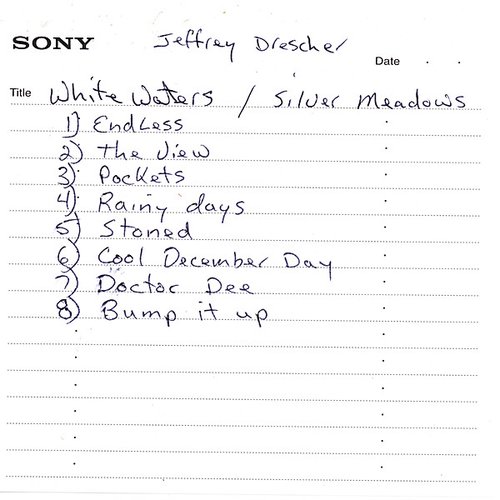 SONY Jeffrey Drescher
Date
Title White Waters / Silver Meadows
1) Endless
2) the View
3) Pockets
4) Rainy days
5) Stoned
6) Cool December Day
7) Doctor Dee
8) Bump it up